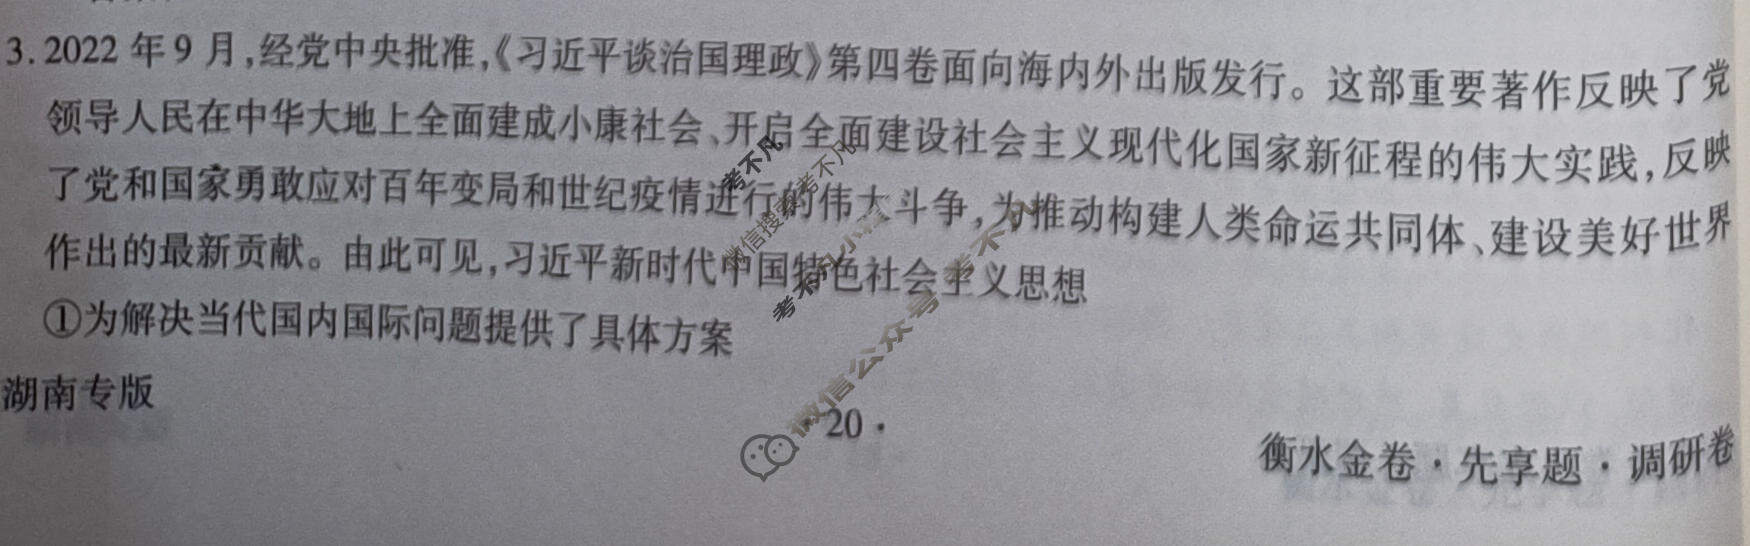 3. 2022 年 9 月,经党中央批准,《习近平谈治国理政》第四卷面向海内外出版发行。这部重要著作反映了党
领导人民在中华大地上全面建成小康社会、开启全面建设社会主义现代化国家新征程的伟大实践,反映
了党和国家勇敢应对百年变局和世纪疫情进行的伟大斗争,为推动构建人类命运共同体、建设美好世界
作出的最新贡献。由此可见,习近平新时代中国特色社会主义思想
①为解决当代国内国际问题提供了具体方案
湖南专版
· 20 ·
衡水金卷·先享题·调研卷
考不凡
微信搜索考不凡
考不凡小程序
微信公众号 考不凡